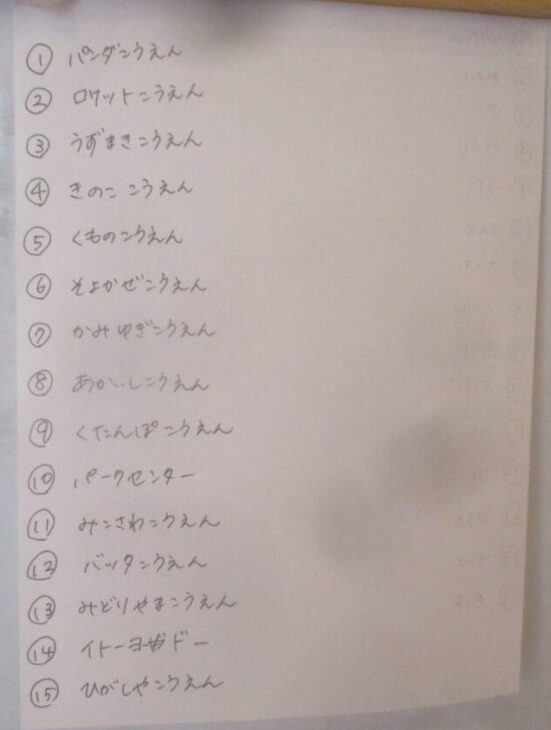 ① パンダこうえん
② ロケットこうえん
③ うずまきこうえん
④ きのここうえん
⑤ くものこうえん
⑥ そよかぜこうえん
⑦ かみゆぎこうえん
⑧ あかいしこうえん
⑨ くたんぽこうえん
⑩ パークセンター
⑪ みこさわこうえん
⑫ バッタこうえん
⑬ みどりやまこうえん
⑭ イトーヨーカドー
⑮ ひがしやこうえん